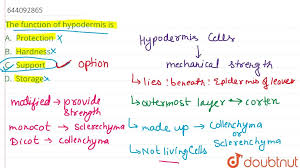 644092865
The function of hypodermis is
A. Protection x
B. Hardness x
C. Support ✓ option
D. Storage x
Hypodermis Cells
↓
→ mechanical strength
↳ lies beneath Epidermis of leaves
↳ outermost layer ↔ cortex
↳ made up → Collenchyma
or
Sclerenchyma
↳ Not living Cells
matified → provide
strength
monocot → Sclerenchyma
Dicot → Collenchyma
doubtnut